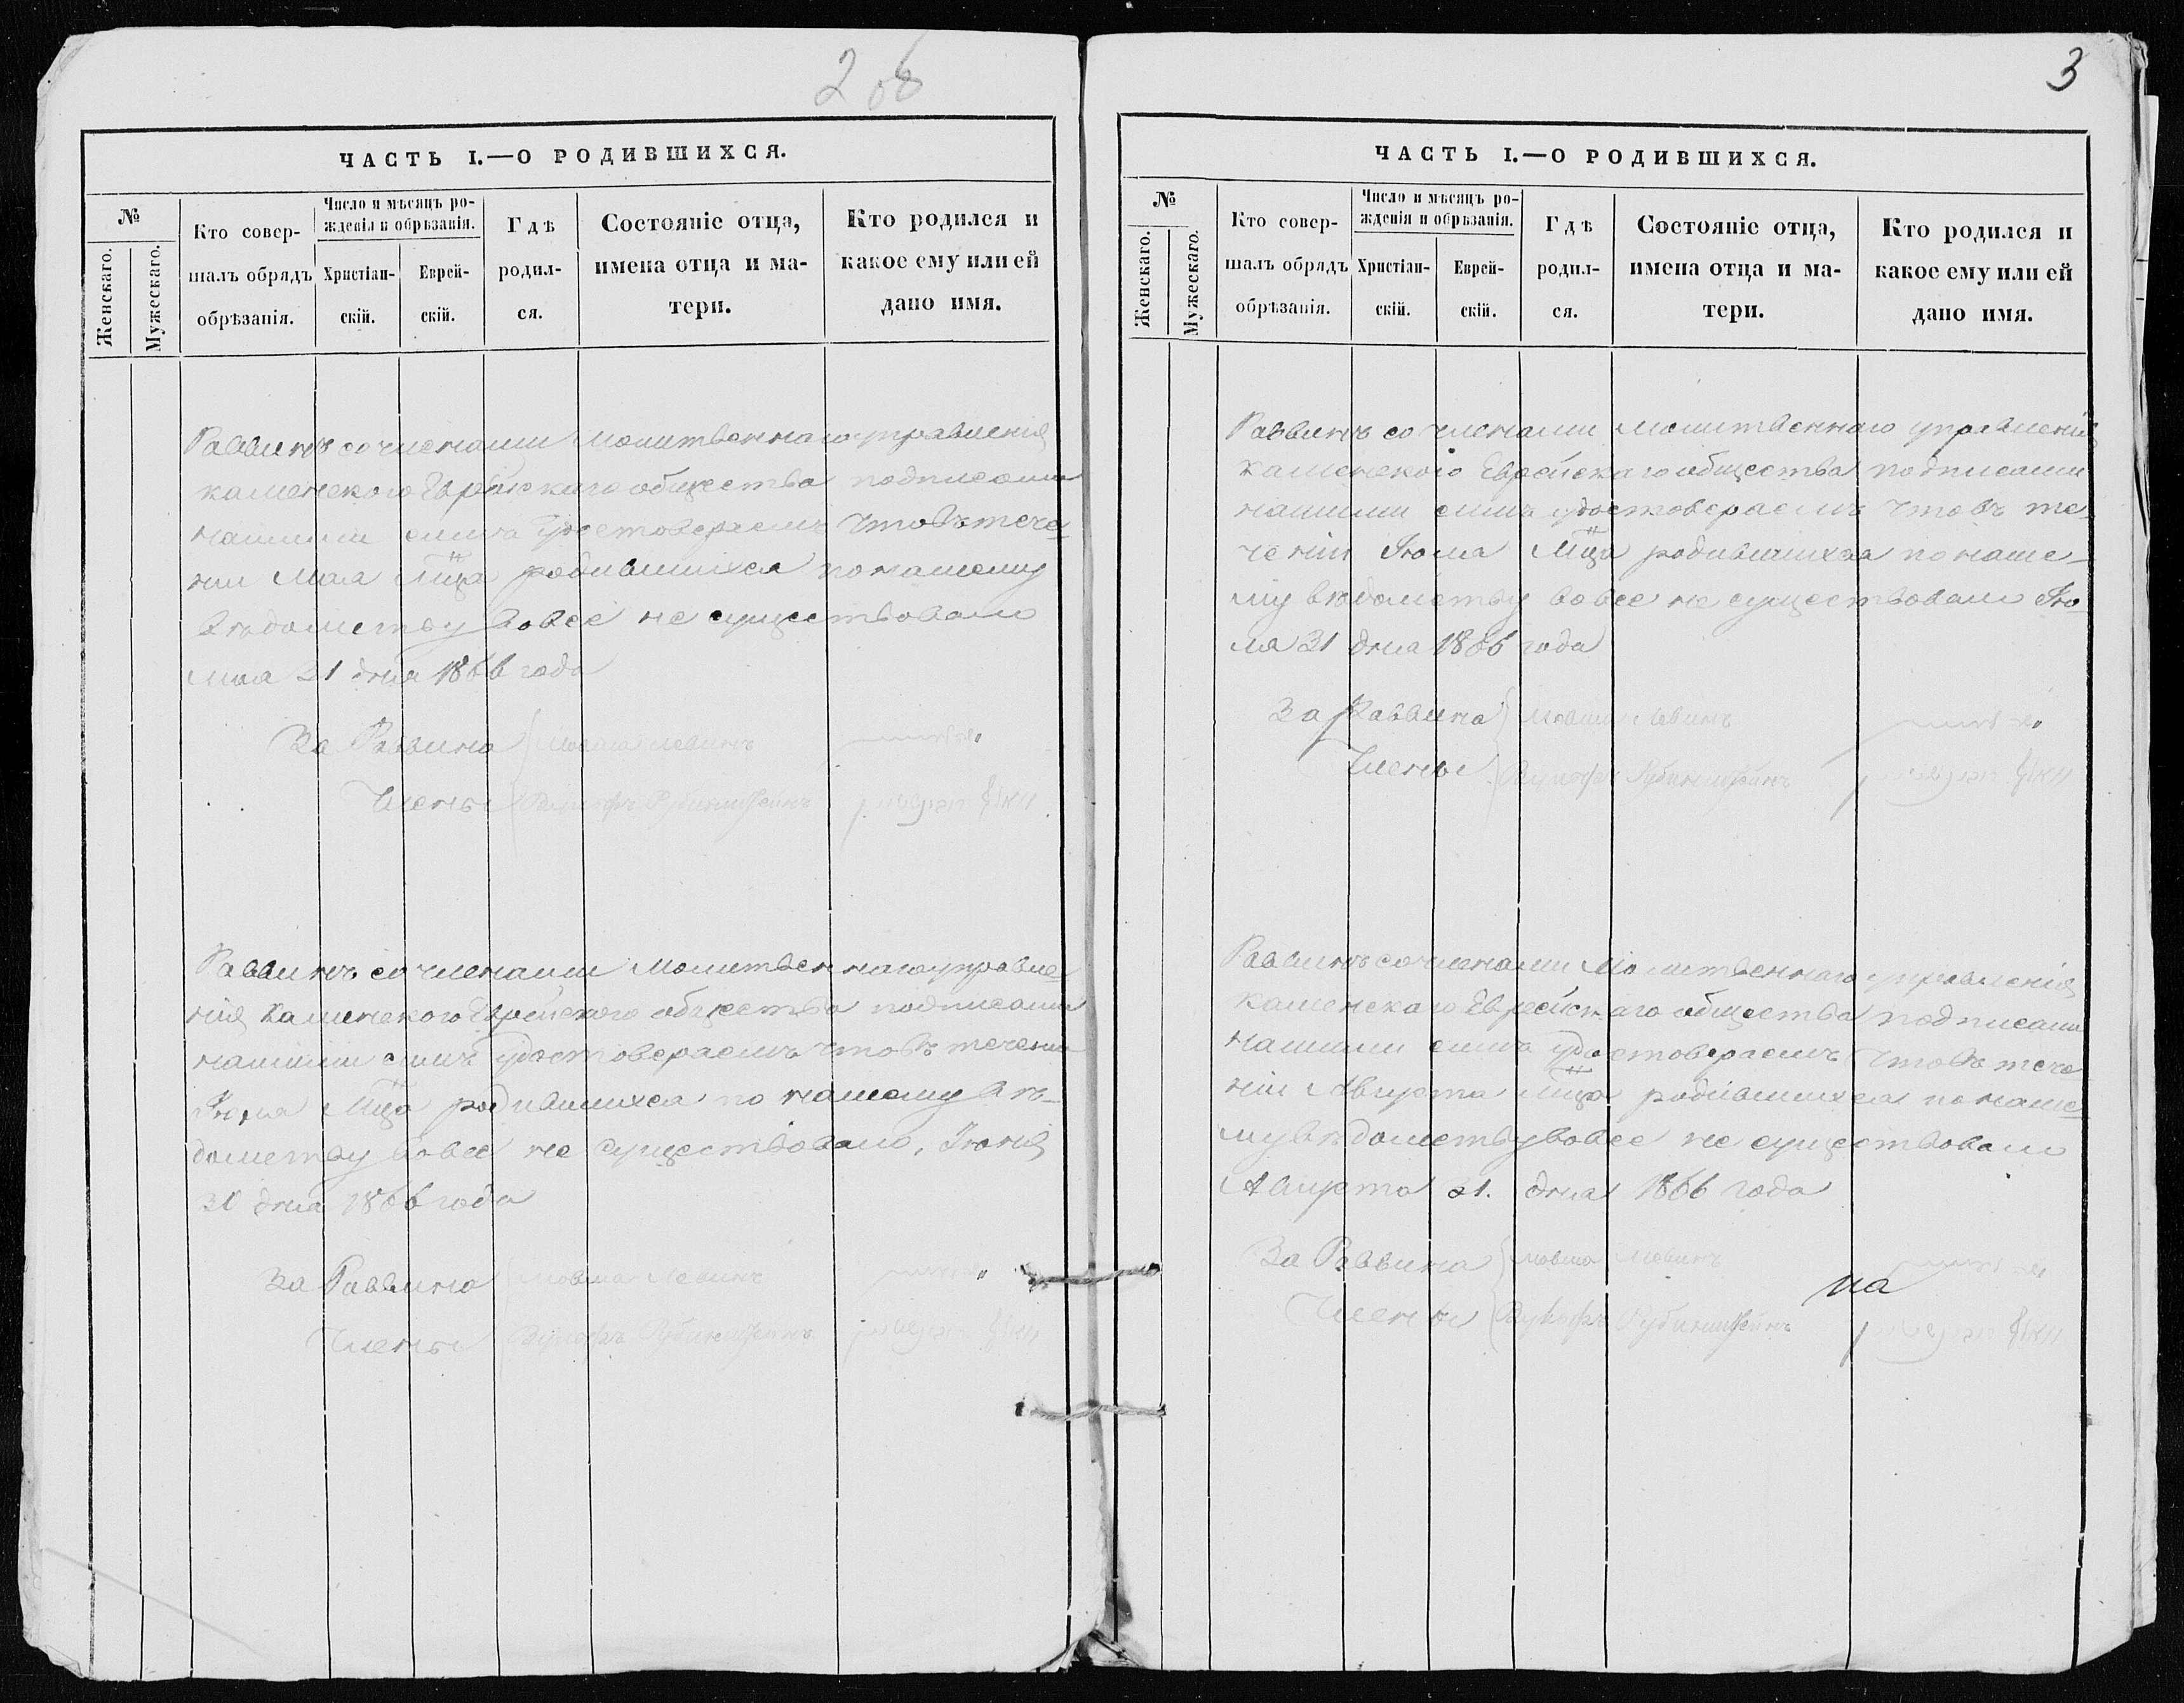 2 об
ЧАСТЬ I.—О РОДИВШИХСЯ.
№
Женскаго.
Мужескаго.
Кто совер-
шалъ обрядъ
обрѣзанія.
Число и мѣсяцъ ро-
жденія и обрѣзанія.
Христіан-
скій.
Еврей-
скій.
Гдѣ
родил-
ся.
Состояніе отца,
имена отца и ма-
тери.
Кто родился и
какое ему или ей
дано имя.
Раввинъ со членами молитвеннаго управленія
каменского Еврейскаго общества подписами
нашими симъ удостоверяемъ что въ тече-
нии Мая Мца родившихся по нашему
вѣдомству вовсе не существовало
мая 31 дня 1866 года
За Раввина Мовша Левинъ
Члены Рубинштейнъ
Раввинъ со членами Молитвеннаго управле-
нія Каменского Еврейского общества подписами
нашими симъ удостоверяемъ что въ течении
Июня Мца родившихся по нашему вѣ-
домству вовсе не существовало, Июня
30 дня 1866 года
За Раввина Мовша Левинъ
Члены Рубинштейнъ
3
ЧАСТЬ I.—О РОДИВШИХСЯ.
№
Женскаго.
Мужескаго.
Кто совер-
шалъ обрядъ
обрѣзанія.
Число и мѣсяцъ ро-
жденія и обрѣзанія.
Христіан-
скій.
Еврей-
скій.
Гдѣ
родил-
ся.
Состояніе отца,
имена отца и ма-
тери.
Кто родился и
какое ему или ей
дано имя.
Раввинъ со членами молитвеннаго управленія
каменского Еврейскаго общества подписами
нашими симъ удостоверяемъ что въ те-
ченіи Июля Мца родившихся по наше-
му вѣдомству вовсе не существовало Ию-
ля 31 дня 1866 года
За Раввина Мовша Левинъ
Члены Рубинштейнъ
Раввинъ со членами Молитвеннаго управленія
Каменскаго Еврейскаго общества подписами
нашими симъ удостоверяемъ что въ тече-
ніи Августа Мца родившихся по наше-
му вѣдомству вовсе не существовало
Августа 31. дня 1866 года
За Раввина Мовша Левинъ
на
Члены Рубинштейнъ